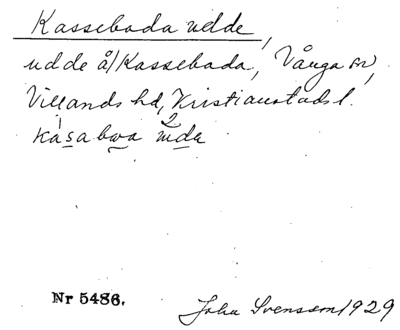 Kasseboda udde,
udde å/Kasseboda, Vånga sn,
Villands hd, Kristianstads l.
Nr 5486.
John Svensson 1929